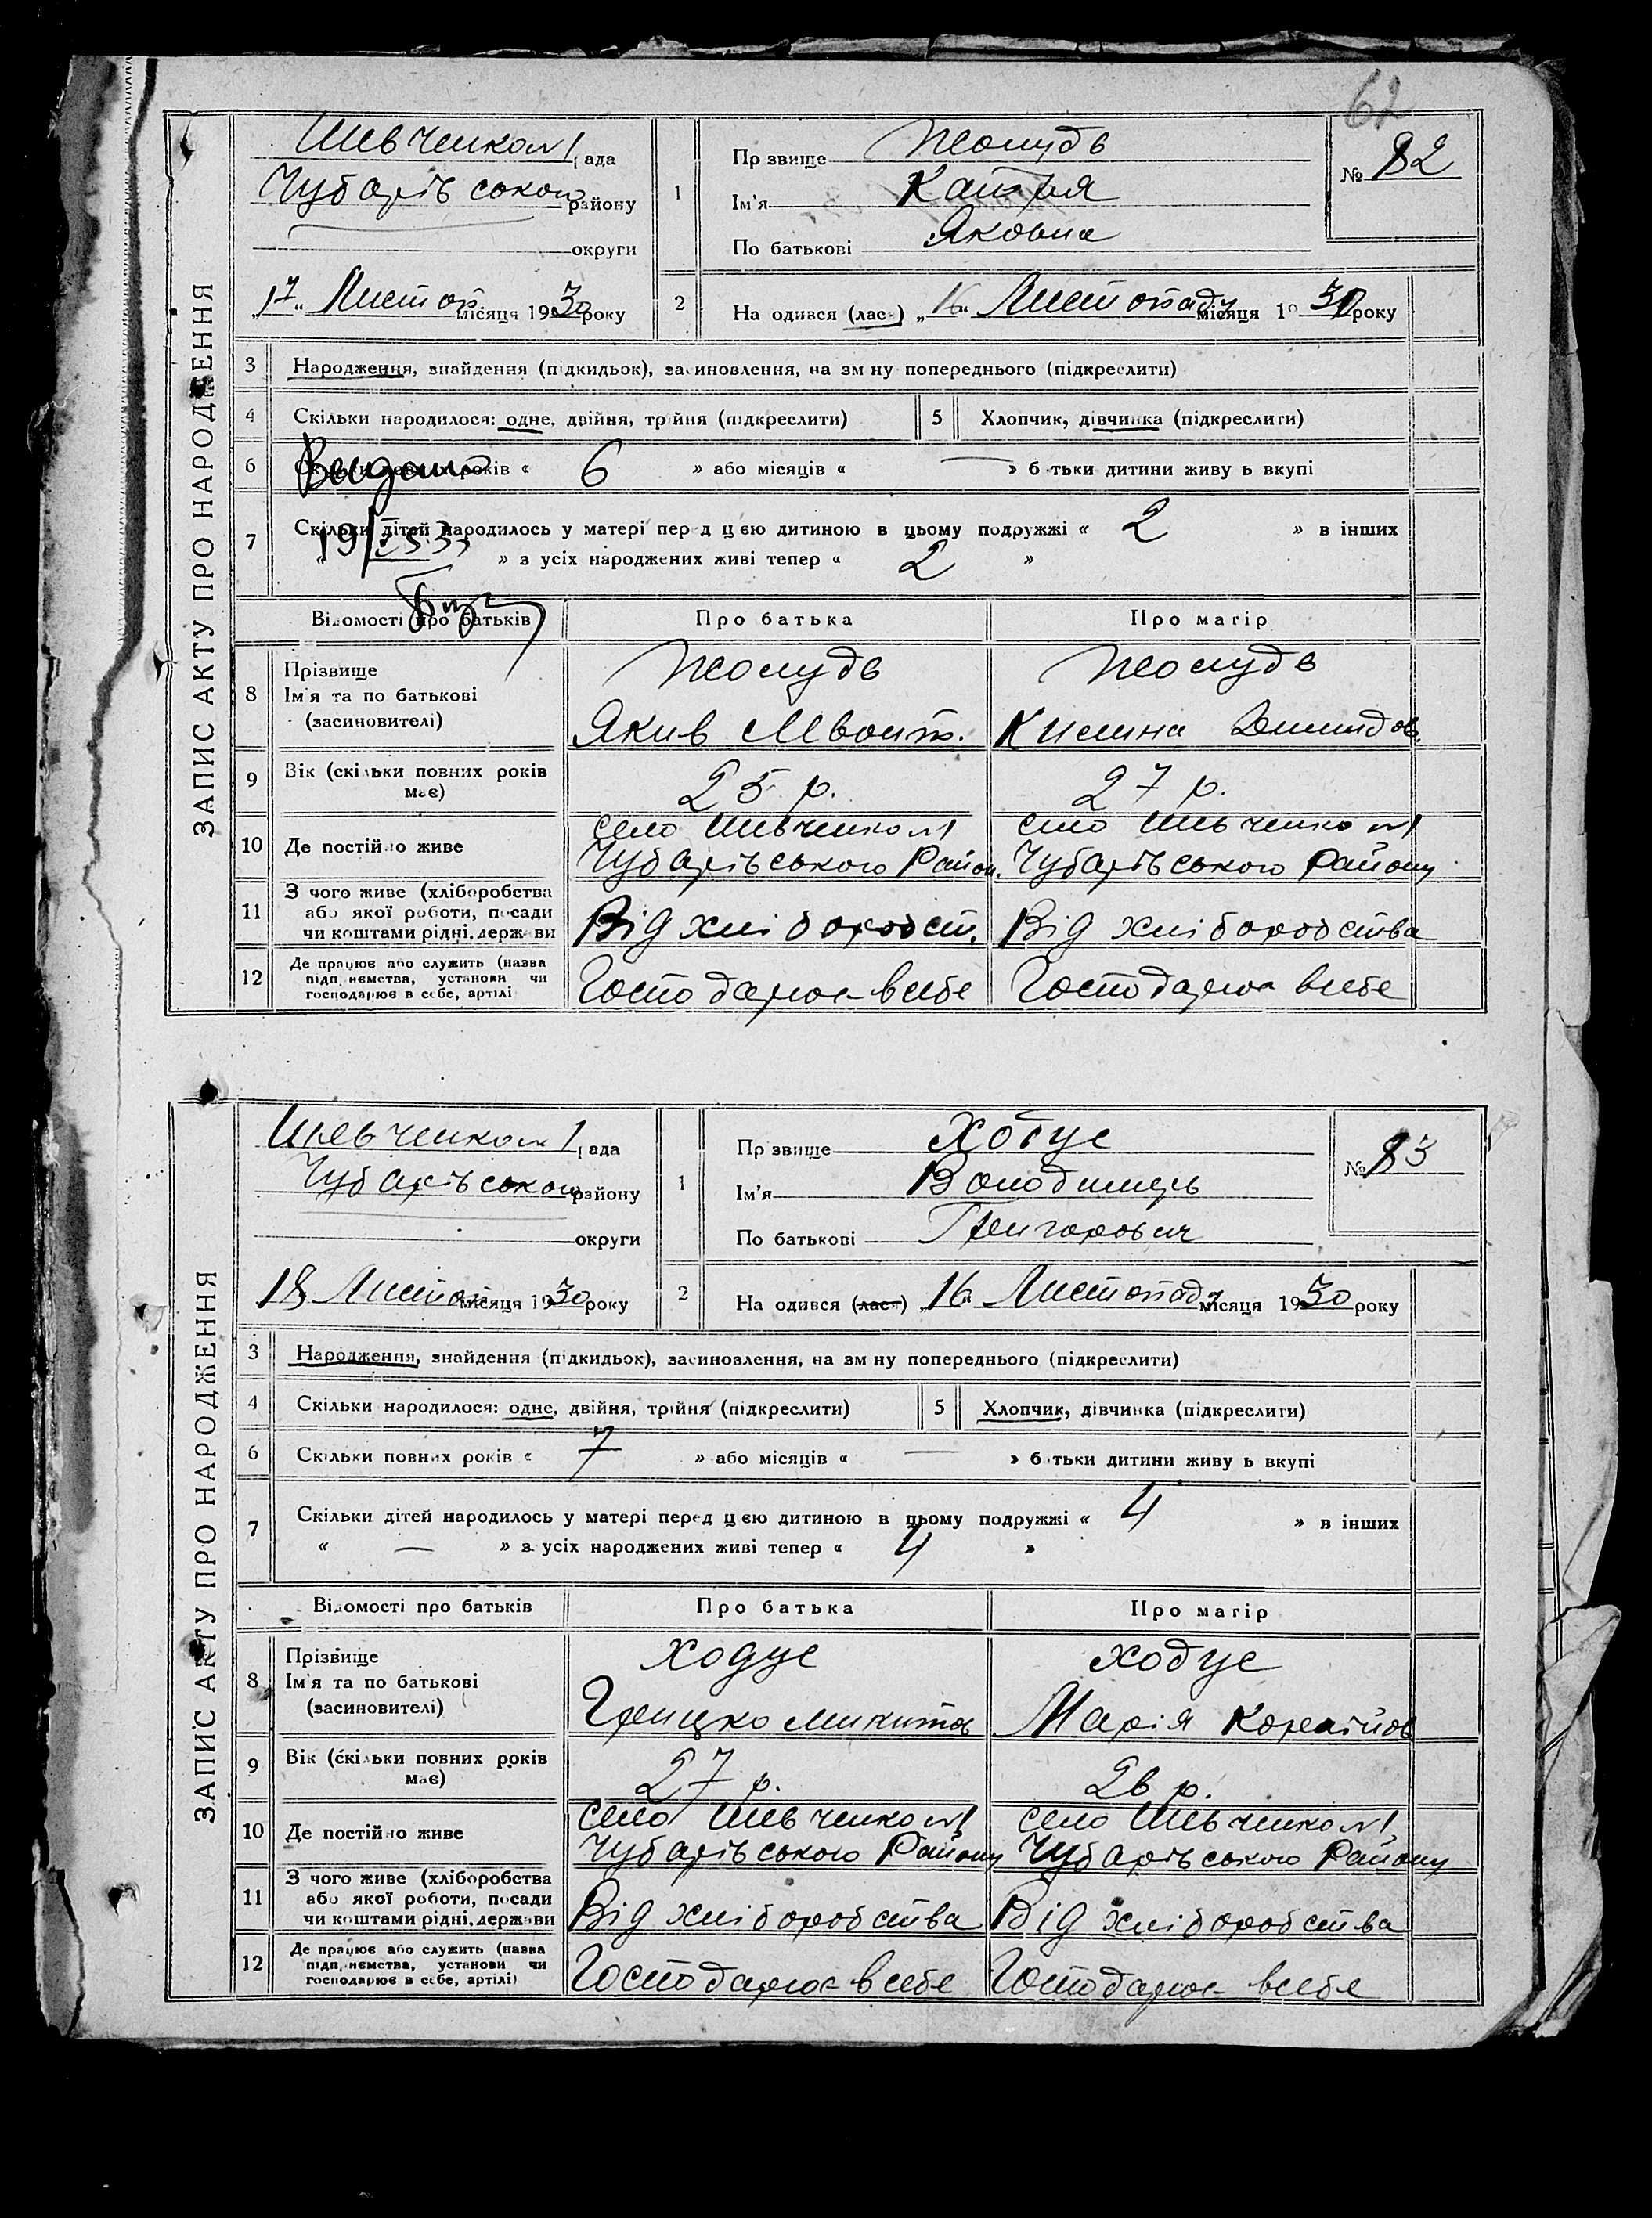 62
ЗАПИС АКТУ ПРО НАРОДЖЕННЯ
Шевченко №1 рада
Чубарівського району
округи
„17“ Листоп. місяця 1930 року
1 Прізвище Жолудь
Ім'я Катря
По батькові Яковна
№ 82
2 Народився (лась) „16“ Листопаду місяця 1930 року
3 Народження, знайдення (підкидьок), засиновлення, на зміну попереднього (підкреслити)
4 Скільки народилося: одне, двійня, трійня (підкреслити)
5 Хлопчик, дівчинка (підкреслити)
6 Скільки повних років « 6 » або місяців « — » батьки дитини живуть вкупі
Видано
7 Скільки дітей народилось у матері перед цією дитиною в цьому подружжі « 2 » в інших
« » з усіх народжених живі тепер « 2 »
Відомості про батьків Про батька Про матір
8 Прізвище Жолудь Жолудь
Ім'я та по батькові
(засиновителі) Якив Килина Демидов.
9 Вік (скільки повних років має) 25 р. 27 р.
10 Де постійно живе село Шевченко №1 село Шевченко №1
Чубарівського Район. Чубарівського Району
11 З чого живе (хліборобства
або якої роботи, посади
чи коштами рідні, держави Від хліборобст. Від хліборобства
12 Де працює або служить (назва
підприємства, установи чи
господарює в себе, артілі Господарює всебе Господарює всебе
ЗАПИС АКТУ ПРО НАРОДЖЕННЯ
Шевченко №1 рада
Чубарівського району
округи
18 Листоп. місяця 1930 року
1 Прізвище Ходус
Ім'я Володимерь
По батькові Григорович
№ 83
2 Народився (лася) „16“ Листопаду місяця 1930 року
3 Народження, знайдення (підкидьок), засиновлення, на зміну попереднього (підкреслити)
4 Скільки народилося: одне, двійня, трійня (підкреслити)
5 Хлопчик, дівчинка (підкреслити)
6 Скільки повних років « 7 » або місяців « — » батьки дитини живуть вкупі
7 Скільки дітей народилось у матері перед цією дитиною в цьому подружжі « 4 » в інших
« — » з усіх народжених живі тепер « 4 »
Відомості про батьків Про батька Про матір
8 Прізвище Ходус Ходус
Ім'я та по батькові
(засиновителі) Грицко Микитов Марія Корнійов
9 Вік (скільки повних років має) 27 р. 26 р.
10 Де постійно живе село Шевченко №1 село Шевченко №1
Чубарівського Району Чубарівського Району
11 З чого живе (хліборобства
або якої роботи, посади
чи коштами рідні, держави Від хліборобства Від хліборобства
12 Де працює або служить (назва
підприємства, установи чи
господарює в себе, артілі) Господарює всебе Господарює всебе